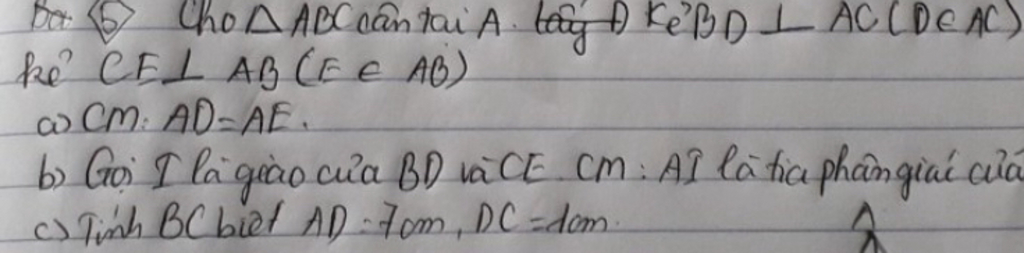 Bài 5 Cho △ ABC cân tại A. lấy D Kẻ BD ⊥ AC (D ∈ AC)
kẻ CE ⊥ AB (E ∈ AB)
a) CM: AD = AE.
b) Gọi I là giao của BD và CE. CM: AI là tia phân giác của
c) Tính BC biết AD = 7cm, DC = 1cm.
A